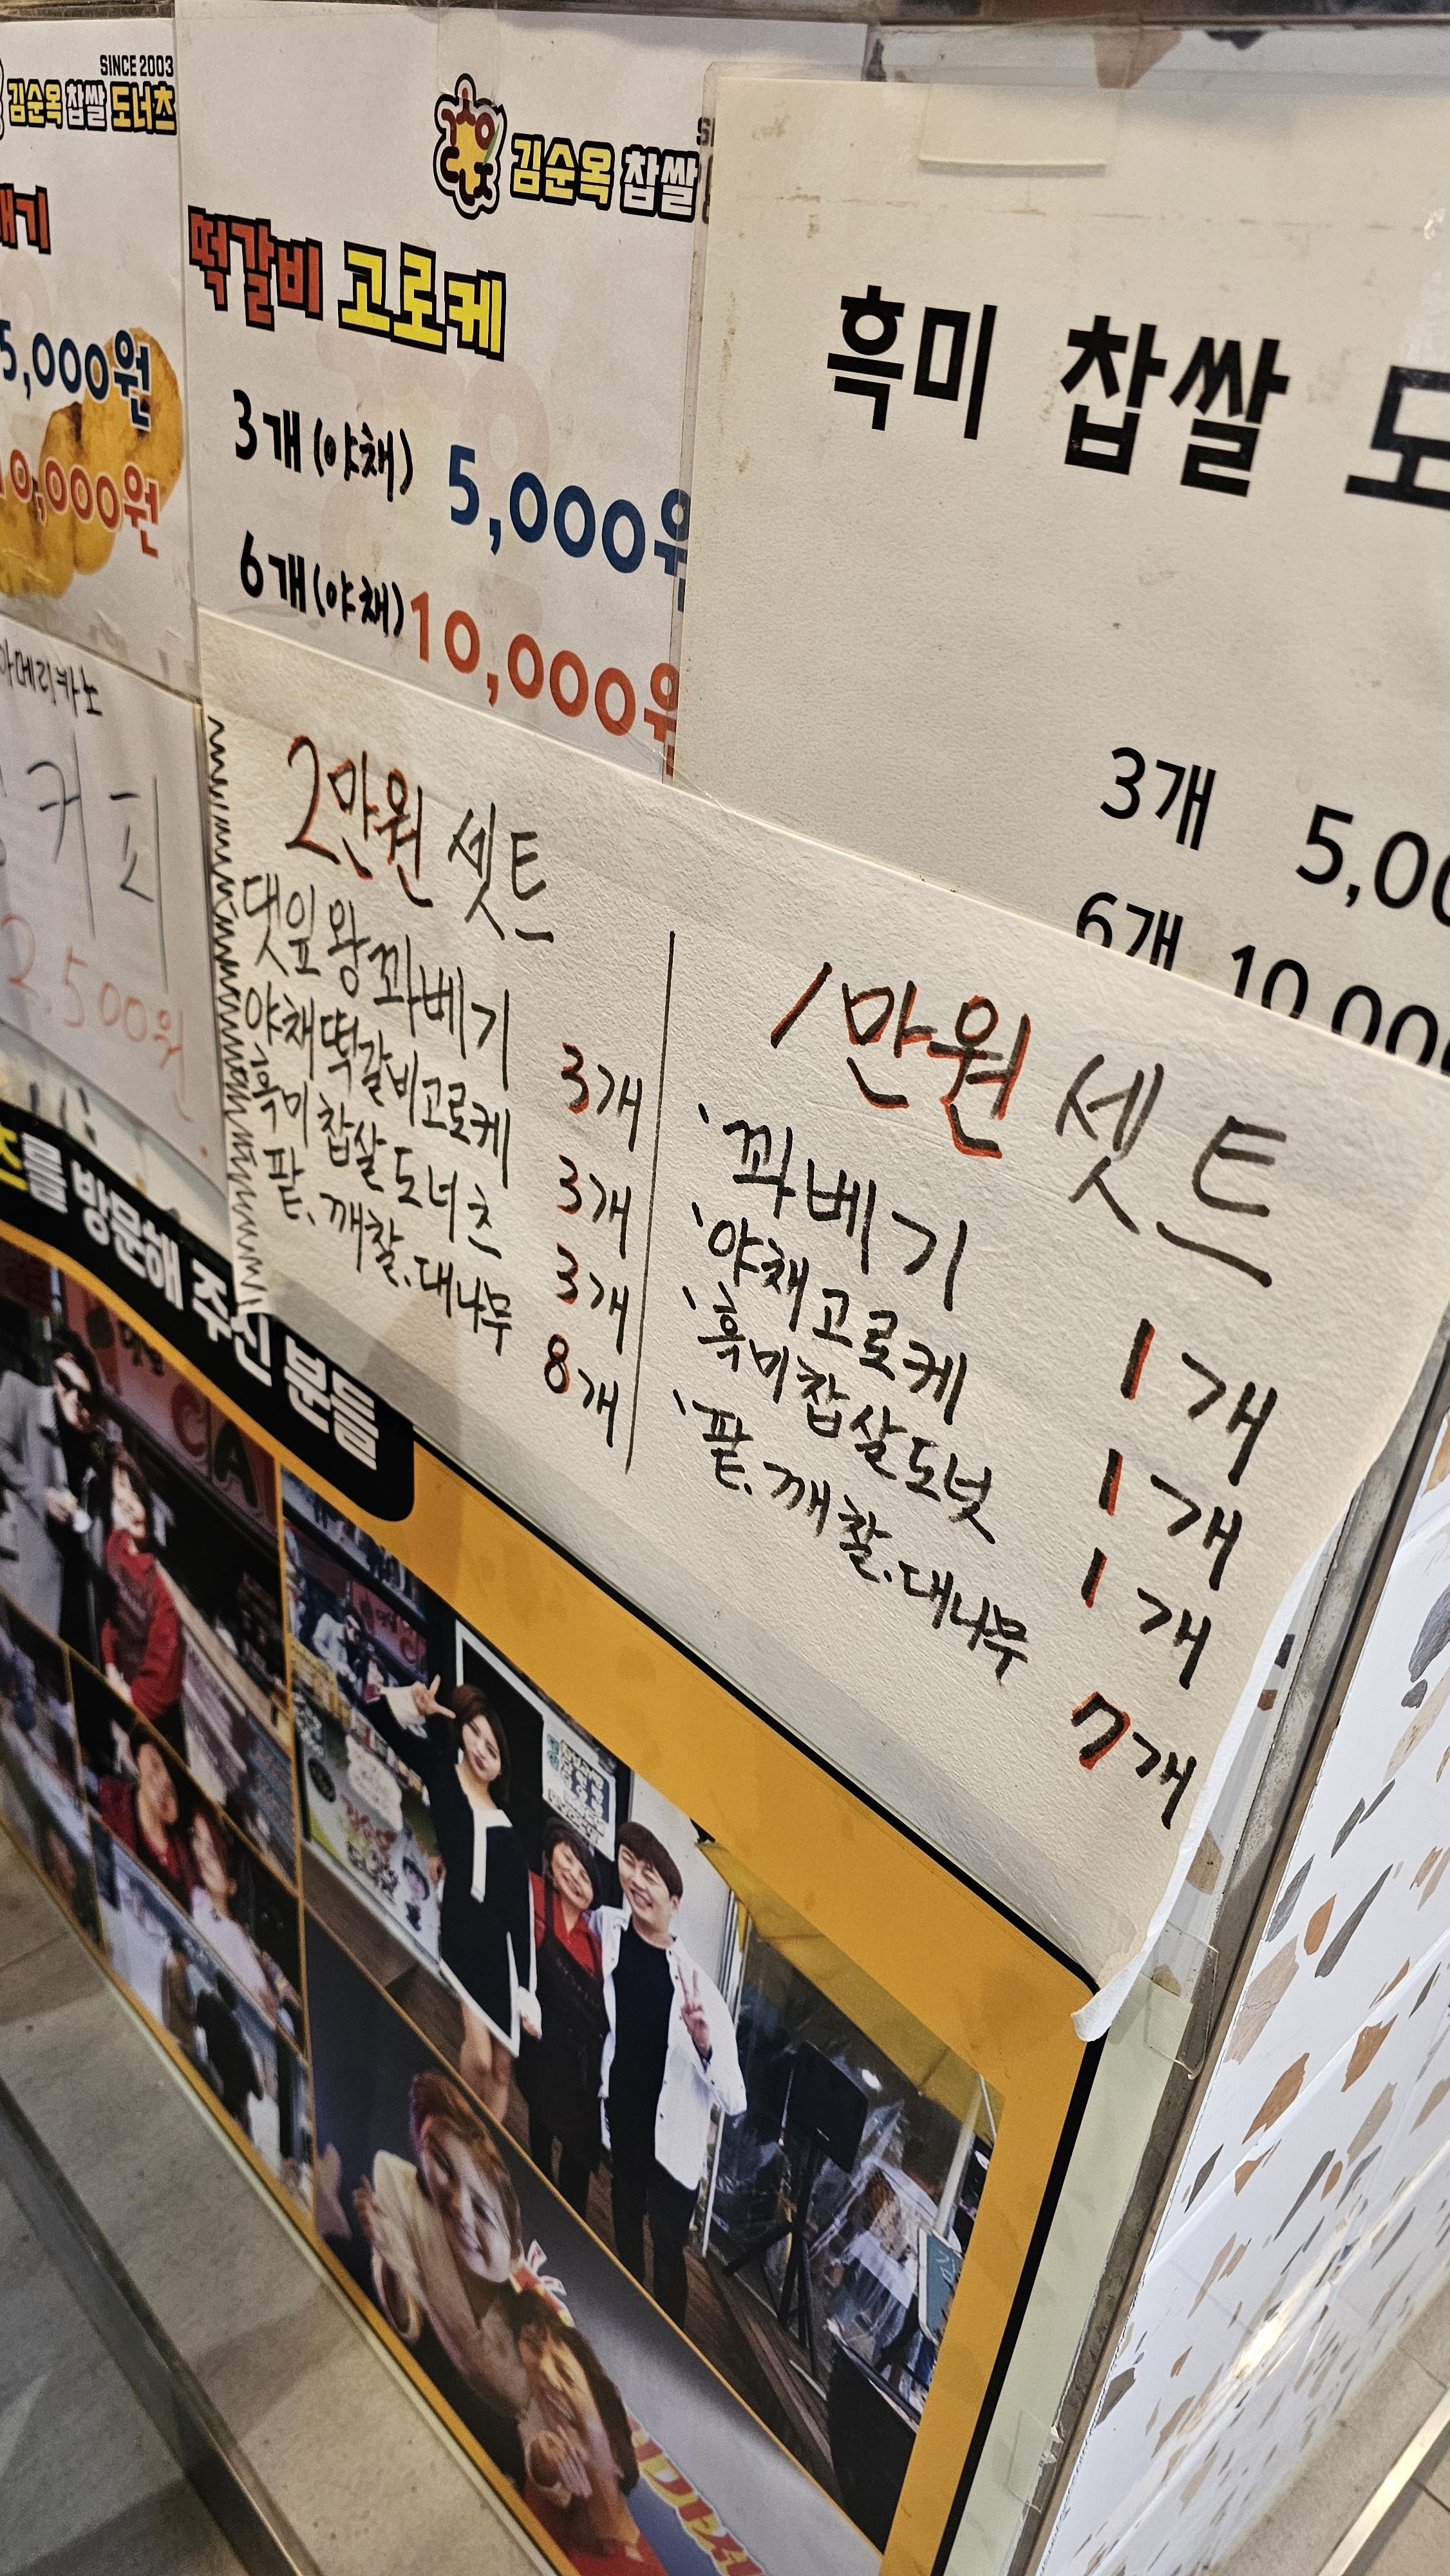 SINCE 2003
김순옥 찹쌀 도너츠
5,000원
10,000원
아메리카노
커피
2,500원
김순옥 찹쌀
떡갈비 고로케
3개(야채) 5,000원
6개(야채) 10,000원
흑미 찹쌀 도
3개 5,00
6개 10,000
2만원 셋트
댓잎왕꽈베기 3개
야채떡갈비고로케 3개
흑미찹살도너츠 3개
팥.깨찰.대나무 8개
1만원 셋트
꽈베기 1개
야채고로케 1개
흑미찹살도넛 1개
팥.깨찰.대나무 7개
츠를 방문해 주신 분들